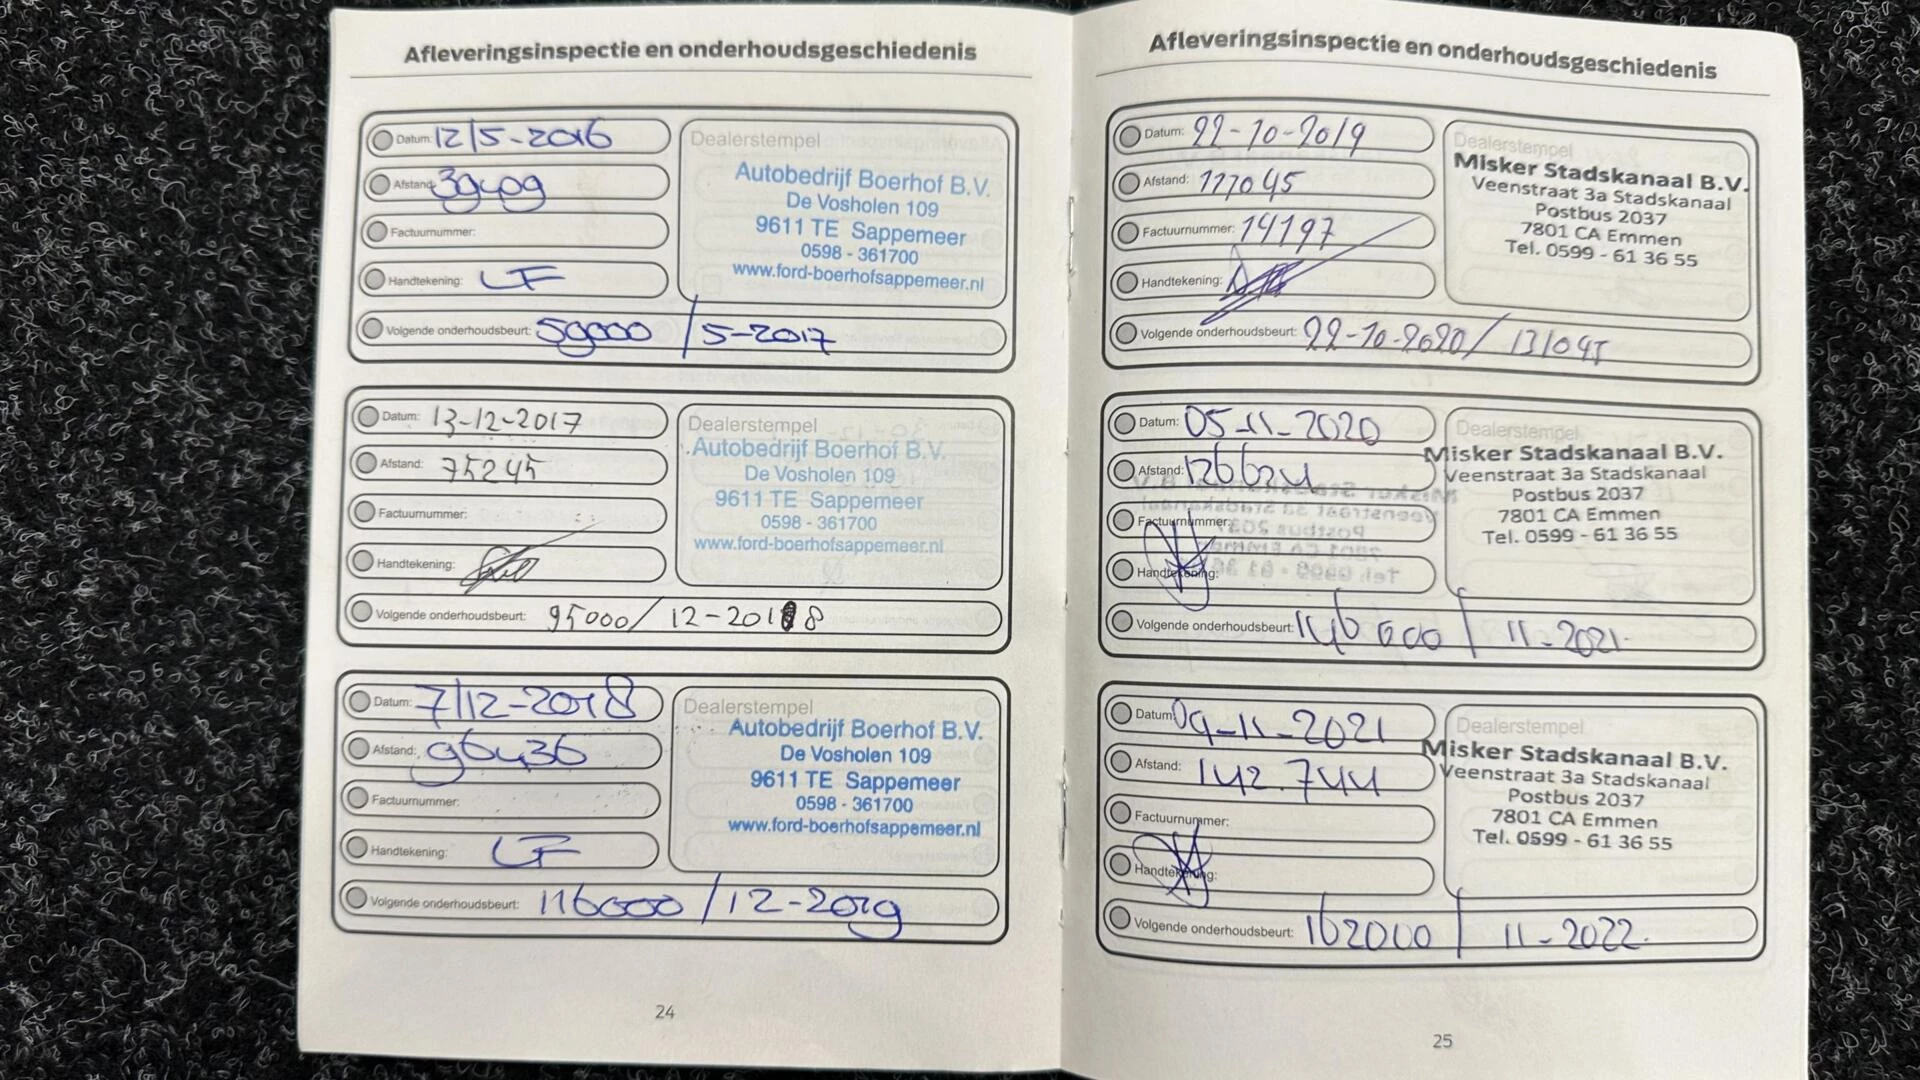 Afleveringsinspectie en onderhoudsgeschiedenis
Datum: 12/5-2016
Afstand: 39409
Factuurnummer:
Handtekening: LF
Volgende onderhoudsbeurt: 59000 / 5-2017
Dealerstempel
Autobedrijf Boerhof B.V.
De Vosholen 109
9611 TE Sappemeer
0598 - 361700
www.ford-boerhofsappemeer.nl
Datum: 13-12-2017
Afstand: 75245
Factuurnummer:
Handtekening:
Volgende onderhoudsbeurt: 95000/ 12-2018
Dealerstempel
Autobedrijf Boerhof B.V.
De Vosholen 109
9611 TE Sappemeer
0598 - 361700
www.ford-boerhofsappemeer.nl
Datum: 7/12-2018
Afstand: 96436
Factuurnummer:
Handtekening: LF
Volgende onderhoudsbeurt: 116000 / 12-2019
Dealerstempel
Autobedrijf Boerhof B.V.
De Vosholen 109
9611 TE Sappemeer
0598 - 361700
www.ford-boerhofsappemeer.nl
24
Afleveringsinspectie en onderhoudsgeschiedenis
Datum: 22-10-2019
Afstand: 111045
Factuurnummer: 14197
Handtekening:
Volgende onderhoudsbeurt: 22-10-2020/ 131045
Dealerstempel
Misker Stadskanaal B.V.
Veenstraat 3a Stadskanaal
Postbus 2037
7801 CA Emmen
Tel. 0599 - 61 36 55
Datum: 05-11-2020
Afstand: 126624
Factuurnummer:
Handtekening:
Volgende onderhoudsbeurt: 146000 / 11-2021.
Dealerstempel
Misker Stadskanaal B.V.
Veenstraat 3a Stadskanaal
Postbus 2037
7801 CA Emmen
Tel. 0599 - 61 36 55
Datum: 09-11-2021
Afstand: 142.744
Factuurnummer:
Handtekening:
Volgende onderhoudsbeurt: 162000 / 11-2022.
Dealerstempel
Misker Stadskanaal B.V.
Veenstraat 3a Stadskanaal
Postbus 2037
7801 CA Emmen
Tel. 0599 - 61 36 55
25